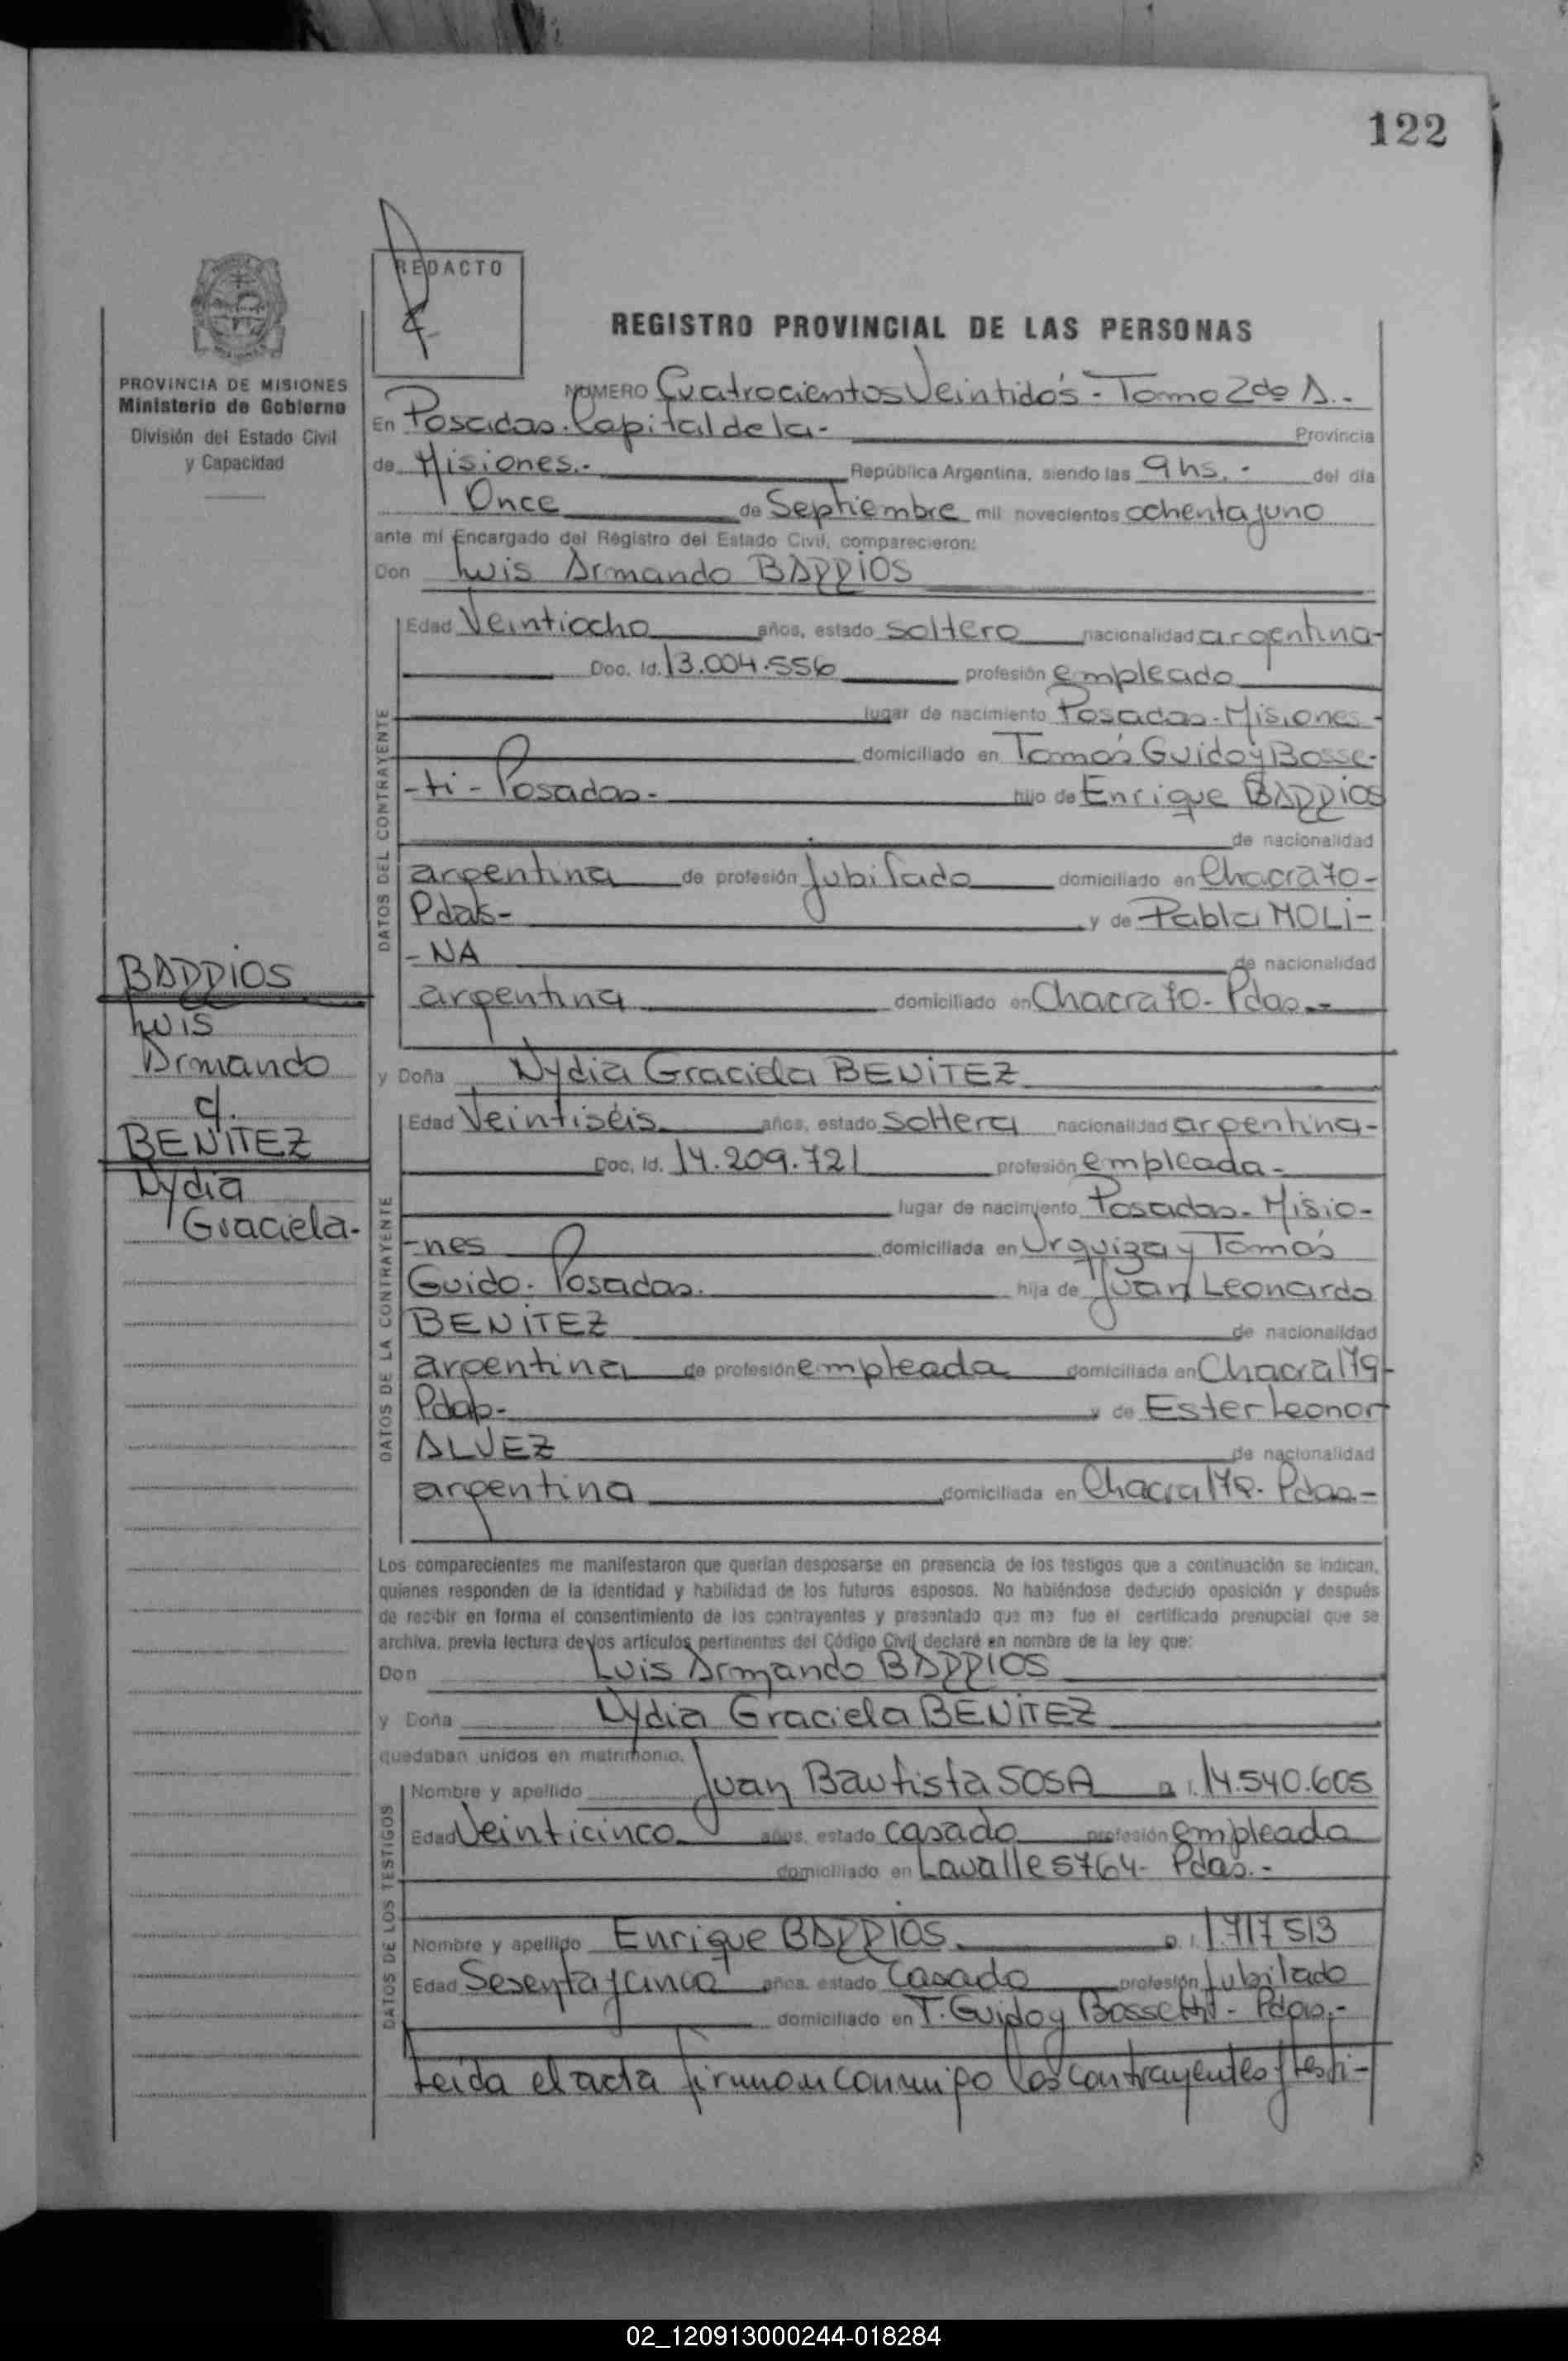 122
REDACTO
REGISTRO PROVINCIAL DE LAS PERSONAS
PROVINCIA DE MISIONES
Ministerio de Gobierno
División del Estado Civil
y Capacidad
NUMERO Cuatrocientos Veintidós - Tomo 2do A.-
En Posadas. Capital de la - Provincia
de Misiones.- República Argentina, siendo las 9 hs. - del día
Once de Septiembre mil novecientos ochenta y uno
ante mí Encargado del Registro del Estado Civil, comparecieron:
Don Luis Armando BARRIOS
DATOS DEL CONTRAYENTE
Edad Veintiocho años, estado soltero nacionalidad argentina-
Doc. Id. 13.004.556 profesión empleado
lugar de nacimiento Posadas - Misiones -
domiciliado en Tomás Guido y Bosse-
-ti - Posadas - hijo de Enrique BARRIOS
de nacionalidad
argentina de profesión Jubilado domiciliado en Chacra 70-
Pdas- y de Pabla MOLI-
-NA de nacionalidad
argentina domiciliado en Chacra 70- Pdas.-
BARRIOS
Luis
Armando
c/.
BENITEZ
Nydia
Graciela-
y Doña Nydia Graciela BENITEZ
DATOS DE LA CONTRAYENTE
Edad Veintiséis años, estado soltera nacionalidad argentina-
Doc. Id. 14.209.721 profesión empleada-
lugar de nacimiento Posadas - Misio-
-nes domiciliada en Urquiza y Tomás
Guido. Posadas. hija de Juan Leonardo
BENITEZ de nacionalidad
argentina de profesión empleada domiciliada en Chacra 179-
Pdas- y de Ester Leonor
ALVEZ de nacionalidad
argentina domiciliada en Chacra 179- Pdas-
Los comparecientes me manifestaron que querían desposarse en presencia de los testigos que a continuación se indican,
quienes responden de la identidad y habilidad de los futuros esposos. No habiéndose deducido oposición y después
de recibir en forma el consentimiento de los contrayentes y presentado que me fue el certificado prenupcial que se
archiva, previa lectura de los artículos pertinentes del Código Civil declaré en nombre de la ley que:
Don Luis Armando BARRIOS
y Doña Nydia Graciela BENITEZ
quedaban unidos en matrimonio.
DATOS DE LOS TESTIGOS
Nombre y apellido Juan Bautista SOSA D. I. 14.540.605
Edad Veinticinco años, estado casado profesión empleado
domiciliado en Lavalle 5764- Pdas.-
Nombre y apellido Enrique BARRIOS D. I. 1717513
Edad Sesenta y cinco años, estado Casado profesión Jubilado
domiciliado en T. Guido y Bossetti - Pdas.-
Leída el acta firman conmigo los contrayentes y testi-
02_120913000244-018284